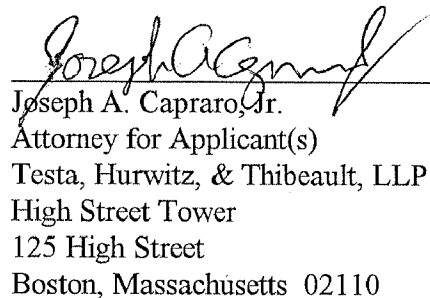 Joseph A. Capraro, Jr.
Attorney for Applicant(s)
Testa, Hurwitz, & Thibeault, LLP
High Street Tower
125 High Street
Boston, Massachusetts 02110